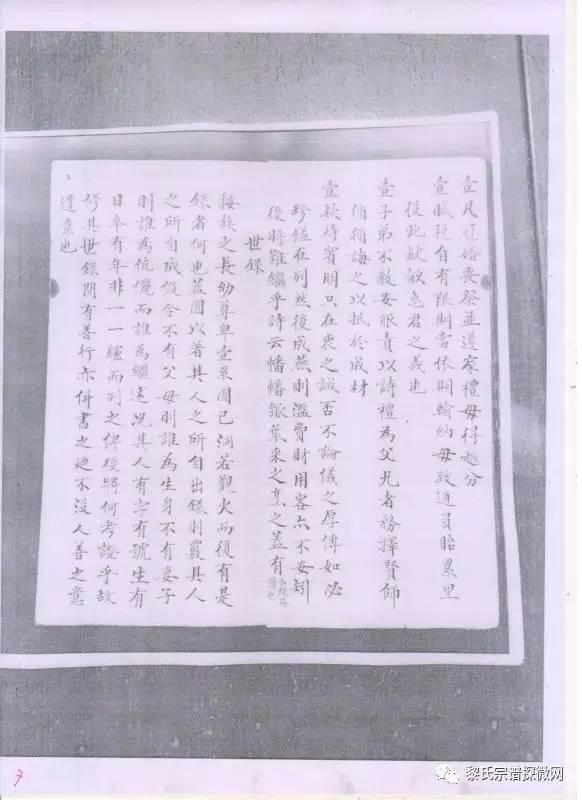 壹凡冠婚喪祭並遵家禮毋得越分
壹賦稅自有限期當依期輸納毋致逋負貽累里
役此獻敵急君之義也
壹子弟不教安眠責以詩禮為父兄者務擇賢師
循循誨之以抵於成材
壹款待賓朋只在衷之誠否不論儀之厚薄如必
珍饈在列然後成燕則濫費財用客亦不安
後將難繼乎詩云幡幡瓠葉采之烹之蓋有
世錄
按族之長幼尊卑壹系圖已洞若觀火而復有是
錄者何也蓋圖以著其人之所自出錄則嚴其人
之所自成假令不有父母則誰為生身不有妻子
則誰為伉儷而誰為繼述況其人有字有號生有
日卒有年非一一臚而列之俾後將何考證乎故
修其世錄間有善行亦併書之迺不沒人善之意
遺意也
7
黎氏宗谱探微网